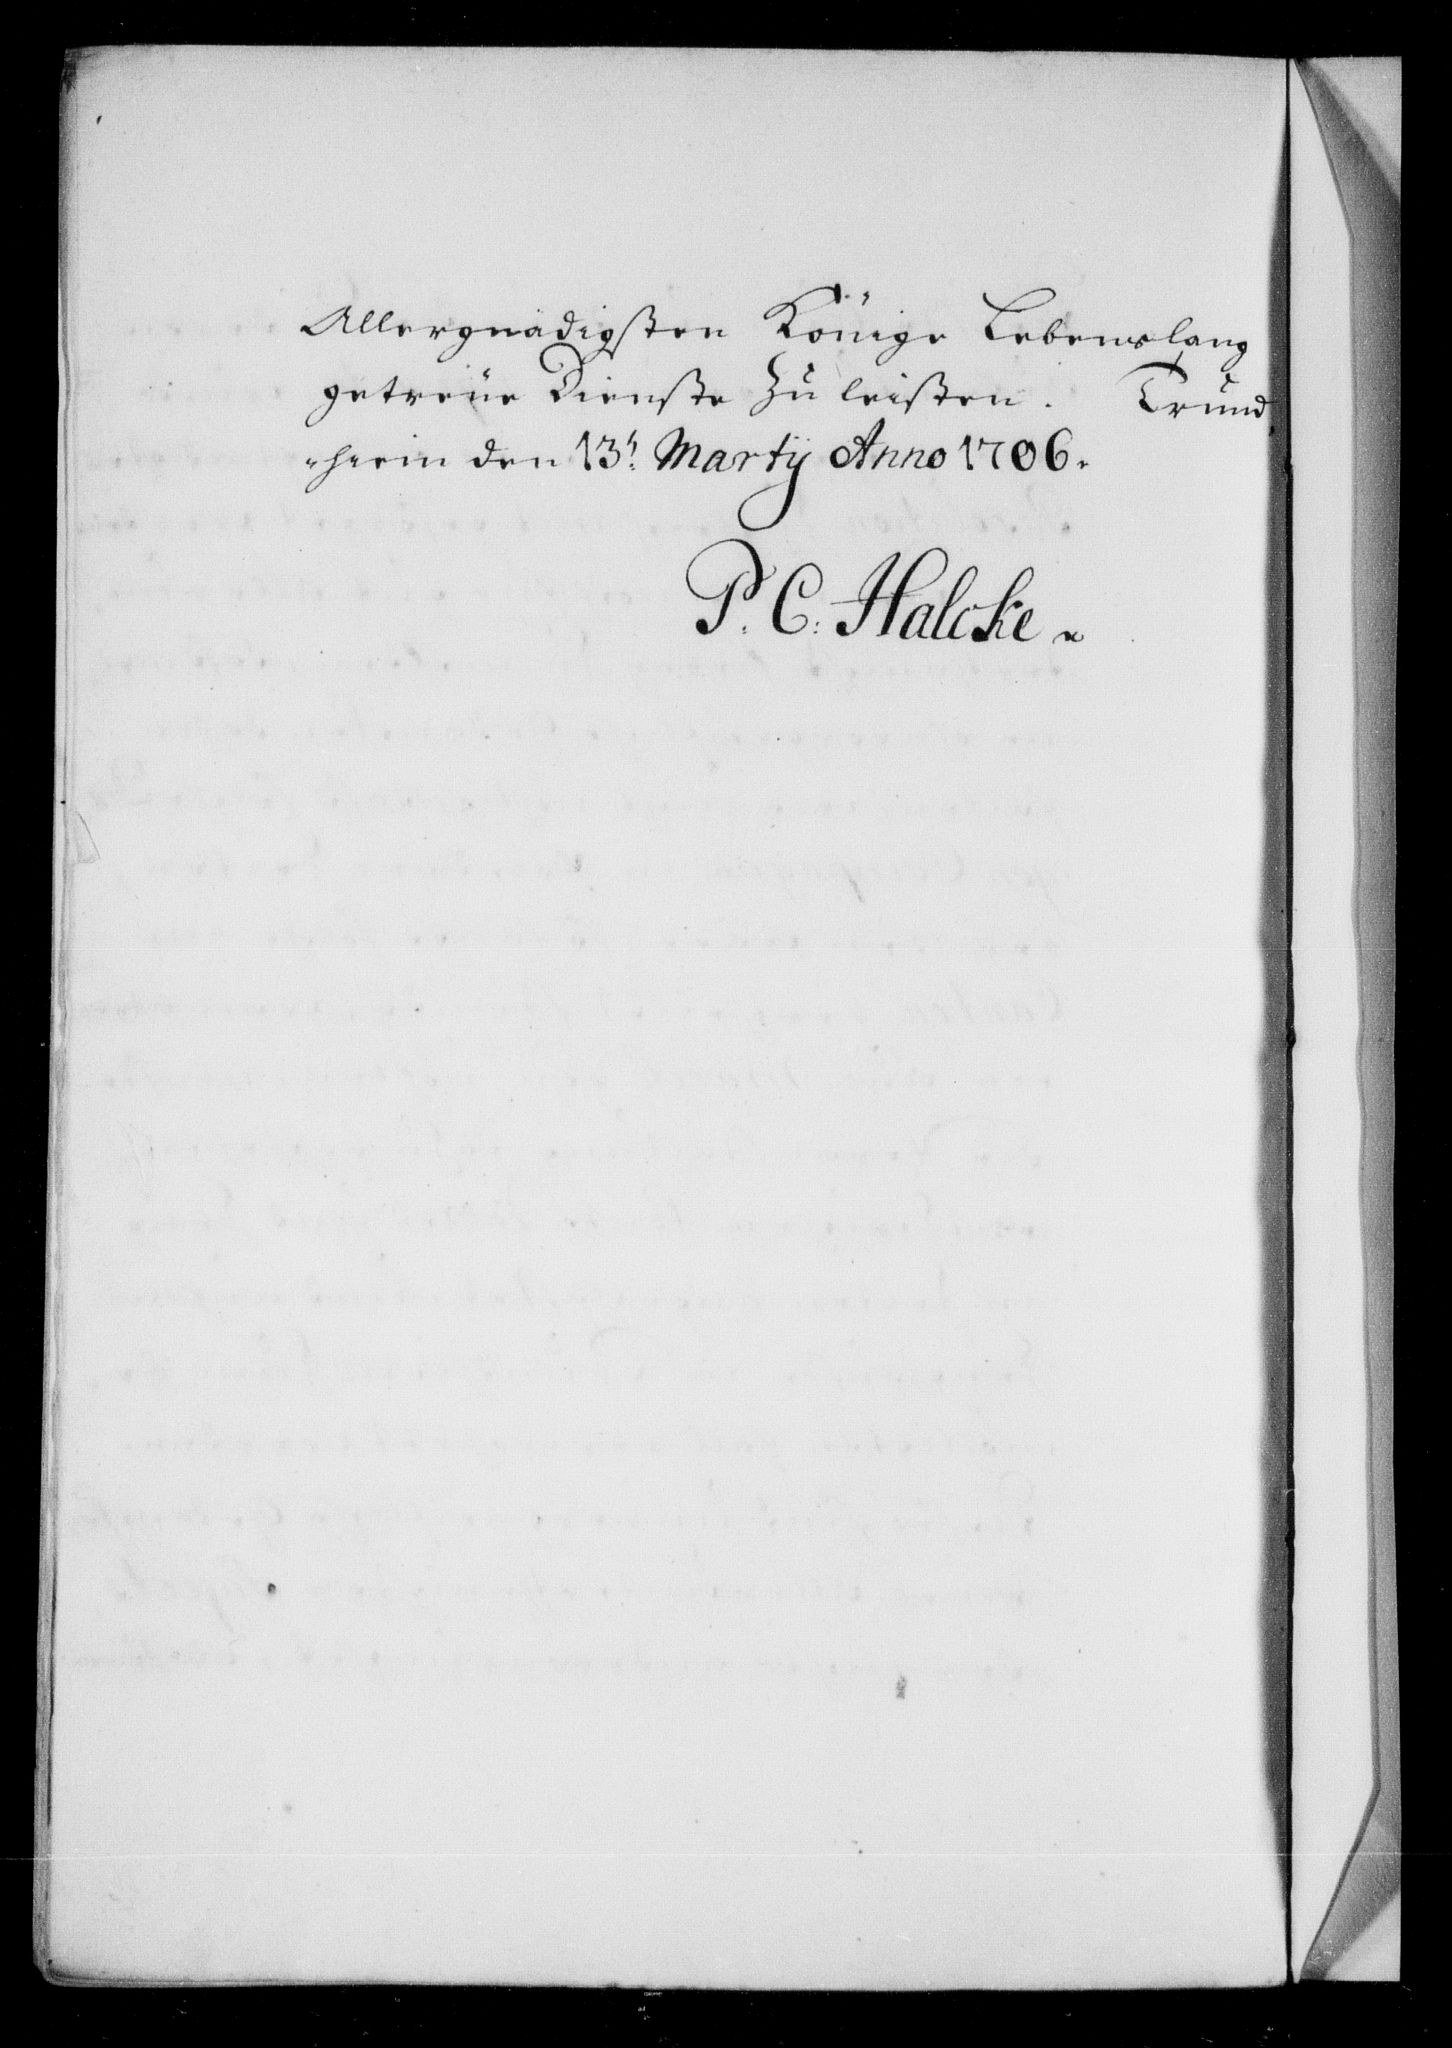 Allergnädigsten Könige Lebenslang
getreüe Dienste Zu leisten. Trund
heim den 13t. Martÿ Anno 1706.
P. C. Halcke